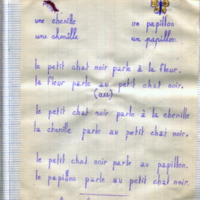 une chenille un papillon
une chenille un papillon
le petit chat noir parle à la fleur.
la fleur parle au petit chat noir.
(au)
le petit chat noir parle à la chenille
la chenille parle au petit chat noir.
le petit chat noir parle au papillon.
le papillon parle au petit chat noir.